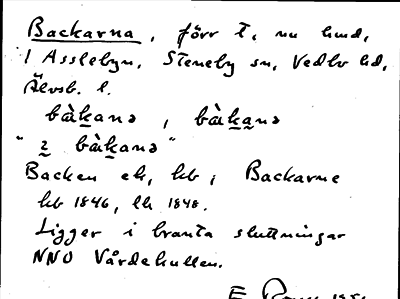 Backarna, förr t, nu hmd,
i Asslebyn, Steneby sn, Vedbo hd,
Älvsb. l.
bàkanə, bàkanə
"i bàkanə"
Backen ek, kb; Backarne
kb 1846, lk 1848.
Ligger i branta sluttningar
NNO Vårdekullen.